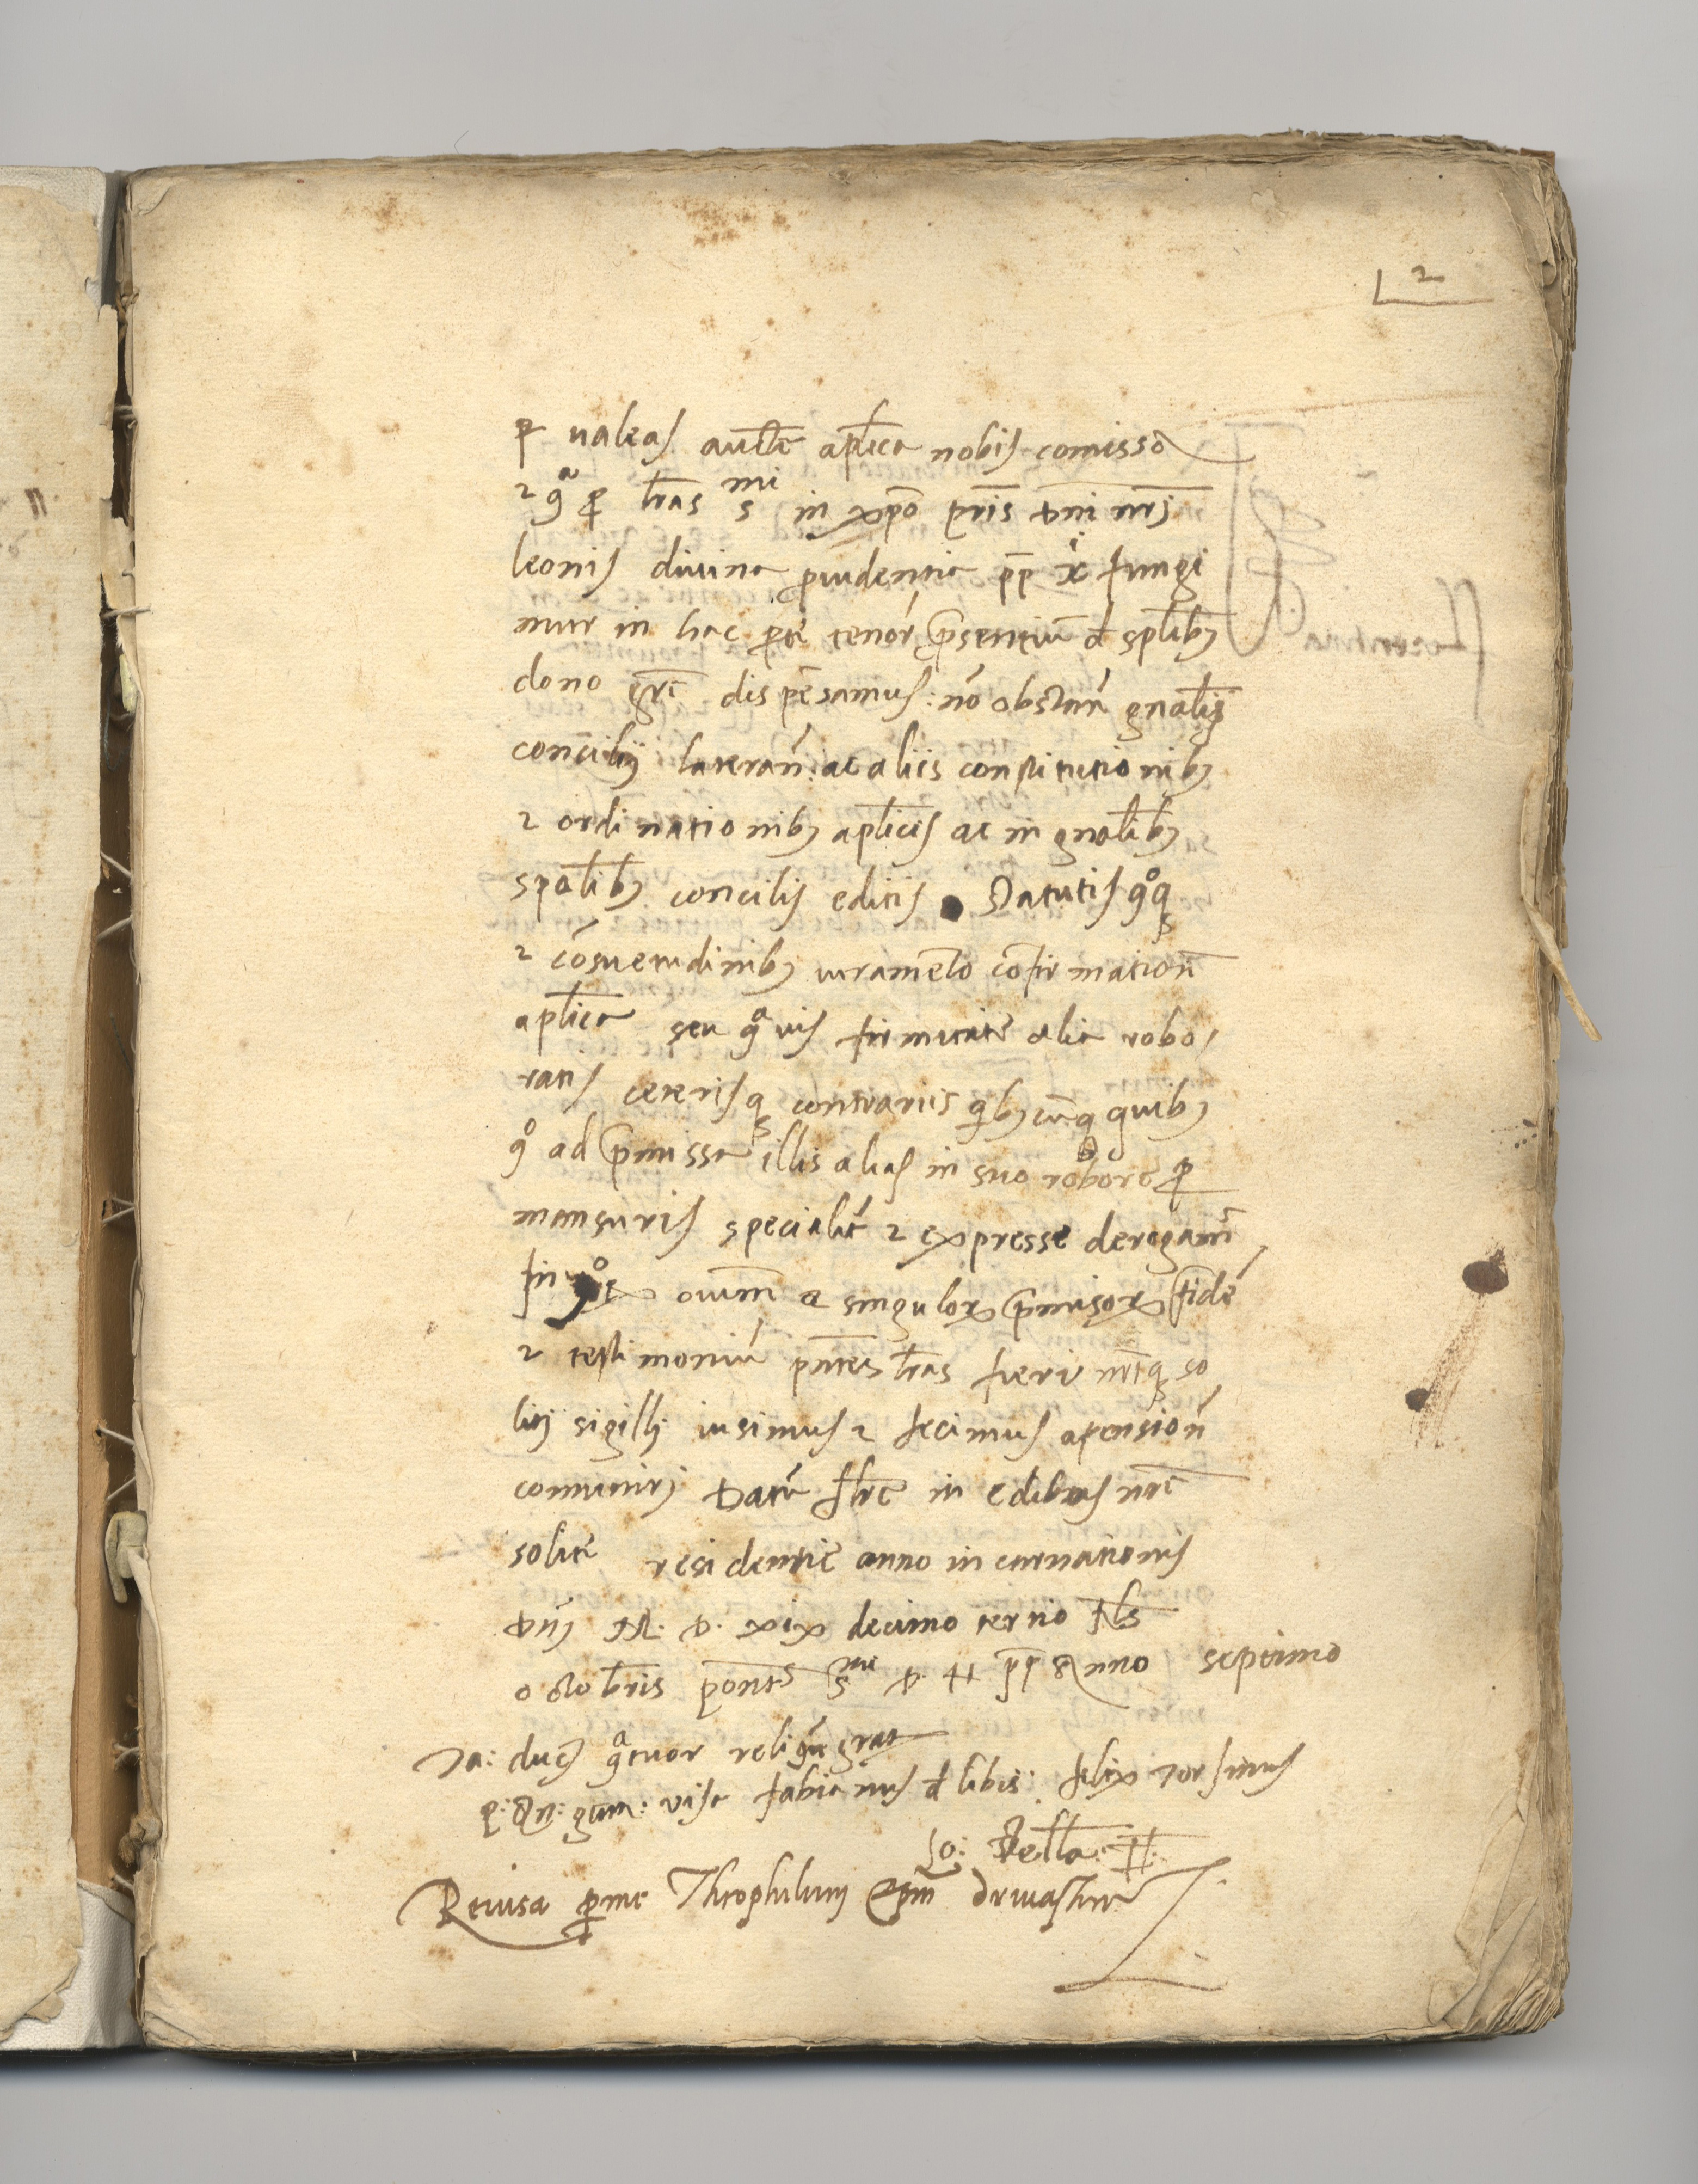 2
ꝑ ualeas auctẽ aplica nobis comisso
⁊ qͣ ꝑ lr̃as sᵐⁱ in xp̃o pr̃is dñi nr̃j
leonis diuina ꝓuidentia pp̃ xⁱ fungi
mur in hac ꝑte tenor̃ p̃sentiũ d̃ splib9
dono gr̃e dispẽsamus: nõ obstañ gñalis
concilij laterañ: ac aliis constitutionib9
⁊ ordinationib9 aplicis ac in gñalib9
spalib9 conciliis editis Statutis qͦqꝫ
⁊ cõsuetudinib9 iuramẽto cõfirmatioñ
aplica seu qͣuis firmitate alia robo
ratis ceterisqꝫ contrariis qⁱb9cũqꝫ quib9
qͦ ad p̃missa illis alias in suo robore ꝑ
mansuris specialit̃ ⁊ expresse derogam̃
In qͦꝝ oium̃ a singuloꝝ p̃misoꝝ fidẽ
⁊ testimoniũ pñtes lr̃as fieri nr̃iqꝫ so
liti sigilli iusimus ⁊ fecimus apensioñ
comuniri Datũ flor̃e in edibus nr̃e
solite residentie anno incarnationis
dñj M. D. xix decimo tertio kls
octobris pont̃s sᵐⁱ d. N pp̃ Anno septimo
Ja: duc9 qͣtuor religũ grat
p: An: gum: visa fabianus d̃ libis: felix
Io: Stella: H:
Reuisa ꝑ me Theophilum Ep̃m driuasten̄